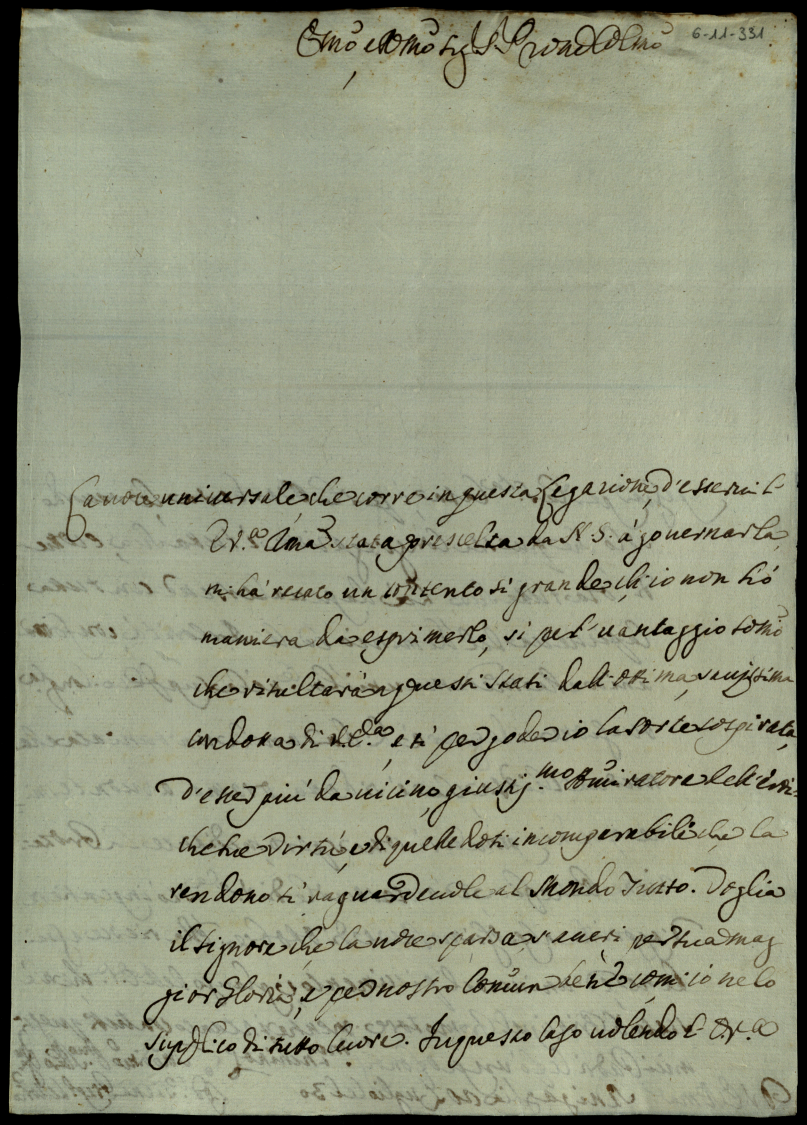 Emo e Rmo Sig. Sig. Pron. Colmo 6-11-331
La voce universale, che corre in questa Legazione, d'esser l'
E. V. Ema stata prescelta da N. S. à governarla,
m'hà recato un contento sì grande, ch'io non hò
maniera da esprimerlo, sì pel vantaggio somo
che risulterà à questi stati dall'ottima, saviissima
condotta di lei, e sì per goder io la sorte sospirata,
d'esser più da vicino giustissmo Ammiratore dell'Eroi=
che sue Virtù, e di quelle doti incomparabili che la
rendono sì raguardevole al Mondo Tutto. Voglia
il Signore che la voce sparsa s'averi per sua mag
gior Gloria, e per nostro Comun bene, com'io ne lo
supplico di tutto Cuore. In questo caso volendo l'E. V.a